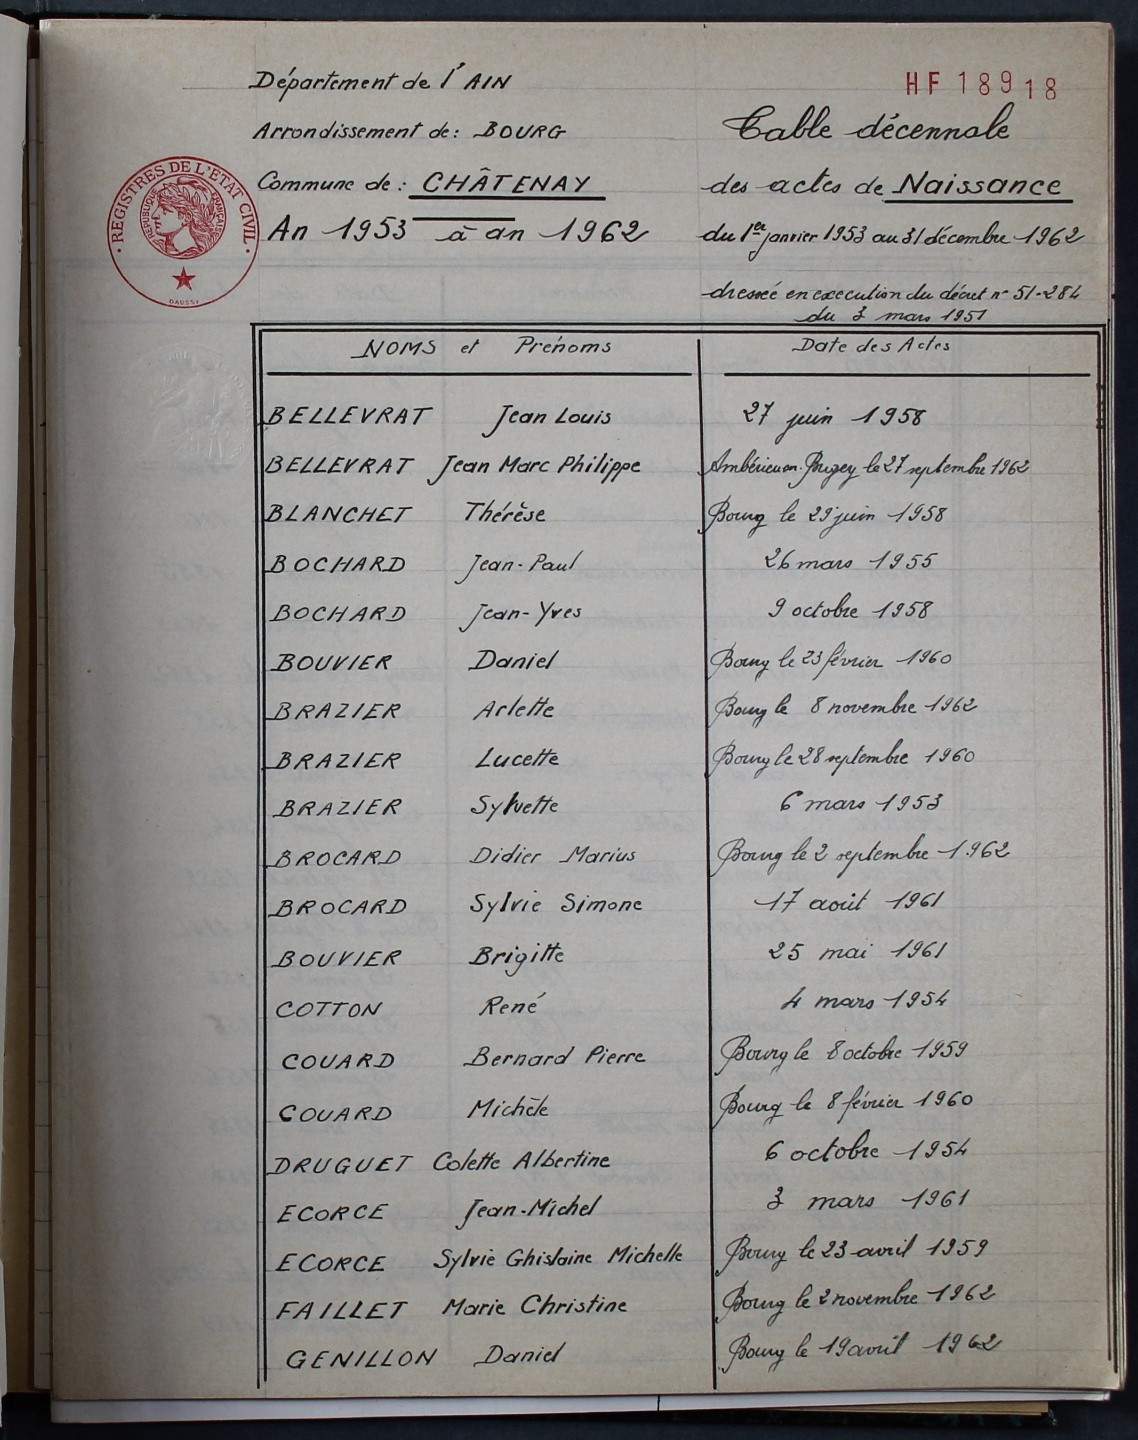 Département de l'AIN
HF 18918
Arrondissement de : BOURG
Table décennale
Commune de : CHÂTENAY
des actes de Naissance
An 1953 à an 1962
du 1er janvier 1953 au 31 décembre 1962
dressée en execution du décret n° 51-284
du 3 mars 1951
REGISTRES DE L'ETAT CIVIL
REPUBLIQUE FRANÇAISE
DAUSSY
NOMS et Prénoms Date des Actes
BELLEVRAT Jean Louis 27 juin 1958
BELLEVRAT Jean Marc Philippe Ambérieu en Bugey le 27 septembre 1962
BLANCHET Thérèse Bourg le 29 juin 1958
BOCHARD Jean-Paul 26 mars 1955
BOCHARD Jean-Yves 9 octobre 1958
BOUVIER Daniel Bourg le 23 février 1960
BRAZIER Arlette Bourg le 8 novembre 1962
BRAZIER Lucette Bourg le 28 septembre 1960
BRAZIER Sylvette 6 mars 1953
BROCARD Didier Marius Bourg le 2 septembre 1962
BROCARD Sylvie Simone 17 août 1961
BOUVIER Brigitte 25 mai 1961
COTTON René 4 mars 1954
COUARD Bernard Pierre Bourg le 8 octobre 1959
COUARD Michèle Bourg le 8 février 1960
DRUGUET Colette Albertine 6 octobre 1954
ECORCE Jean-Michel 3 mars 1961
ECORCE Sylvie Ghislaine Michelle Bourg le 23 avril 1959
FAILLET Marie Christine Bourg le 2 novembre 1962
GENILLON Daniel Bourg le 19 avril 1962